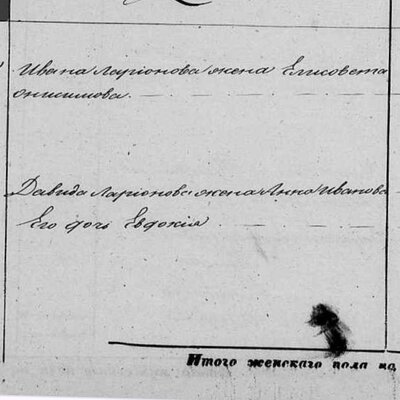 Ивана Ларіонова жена Елисовета
Онисимова.
Давида Ларіонова жена Анна Иванова
Его дочь Евдокія
Итого женскаго пола на